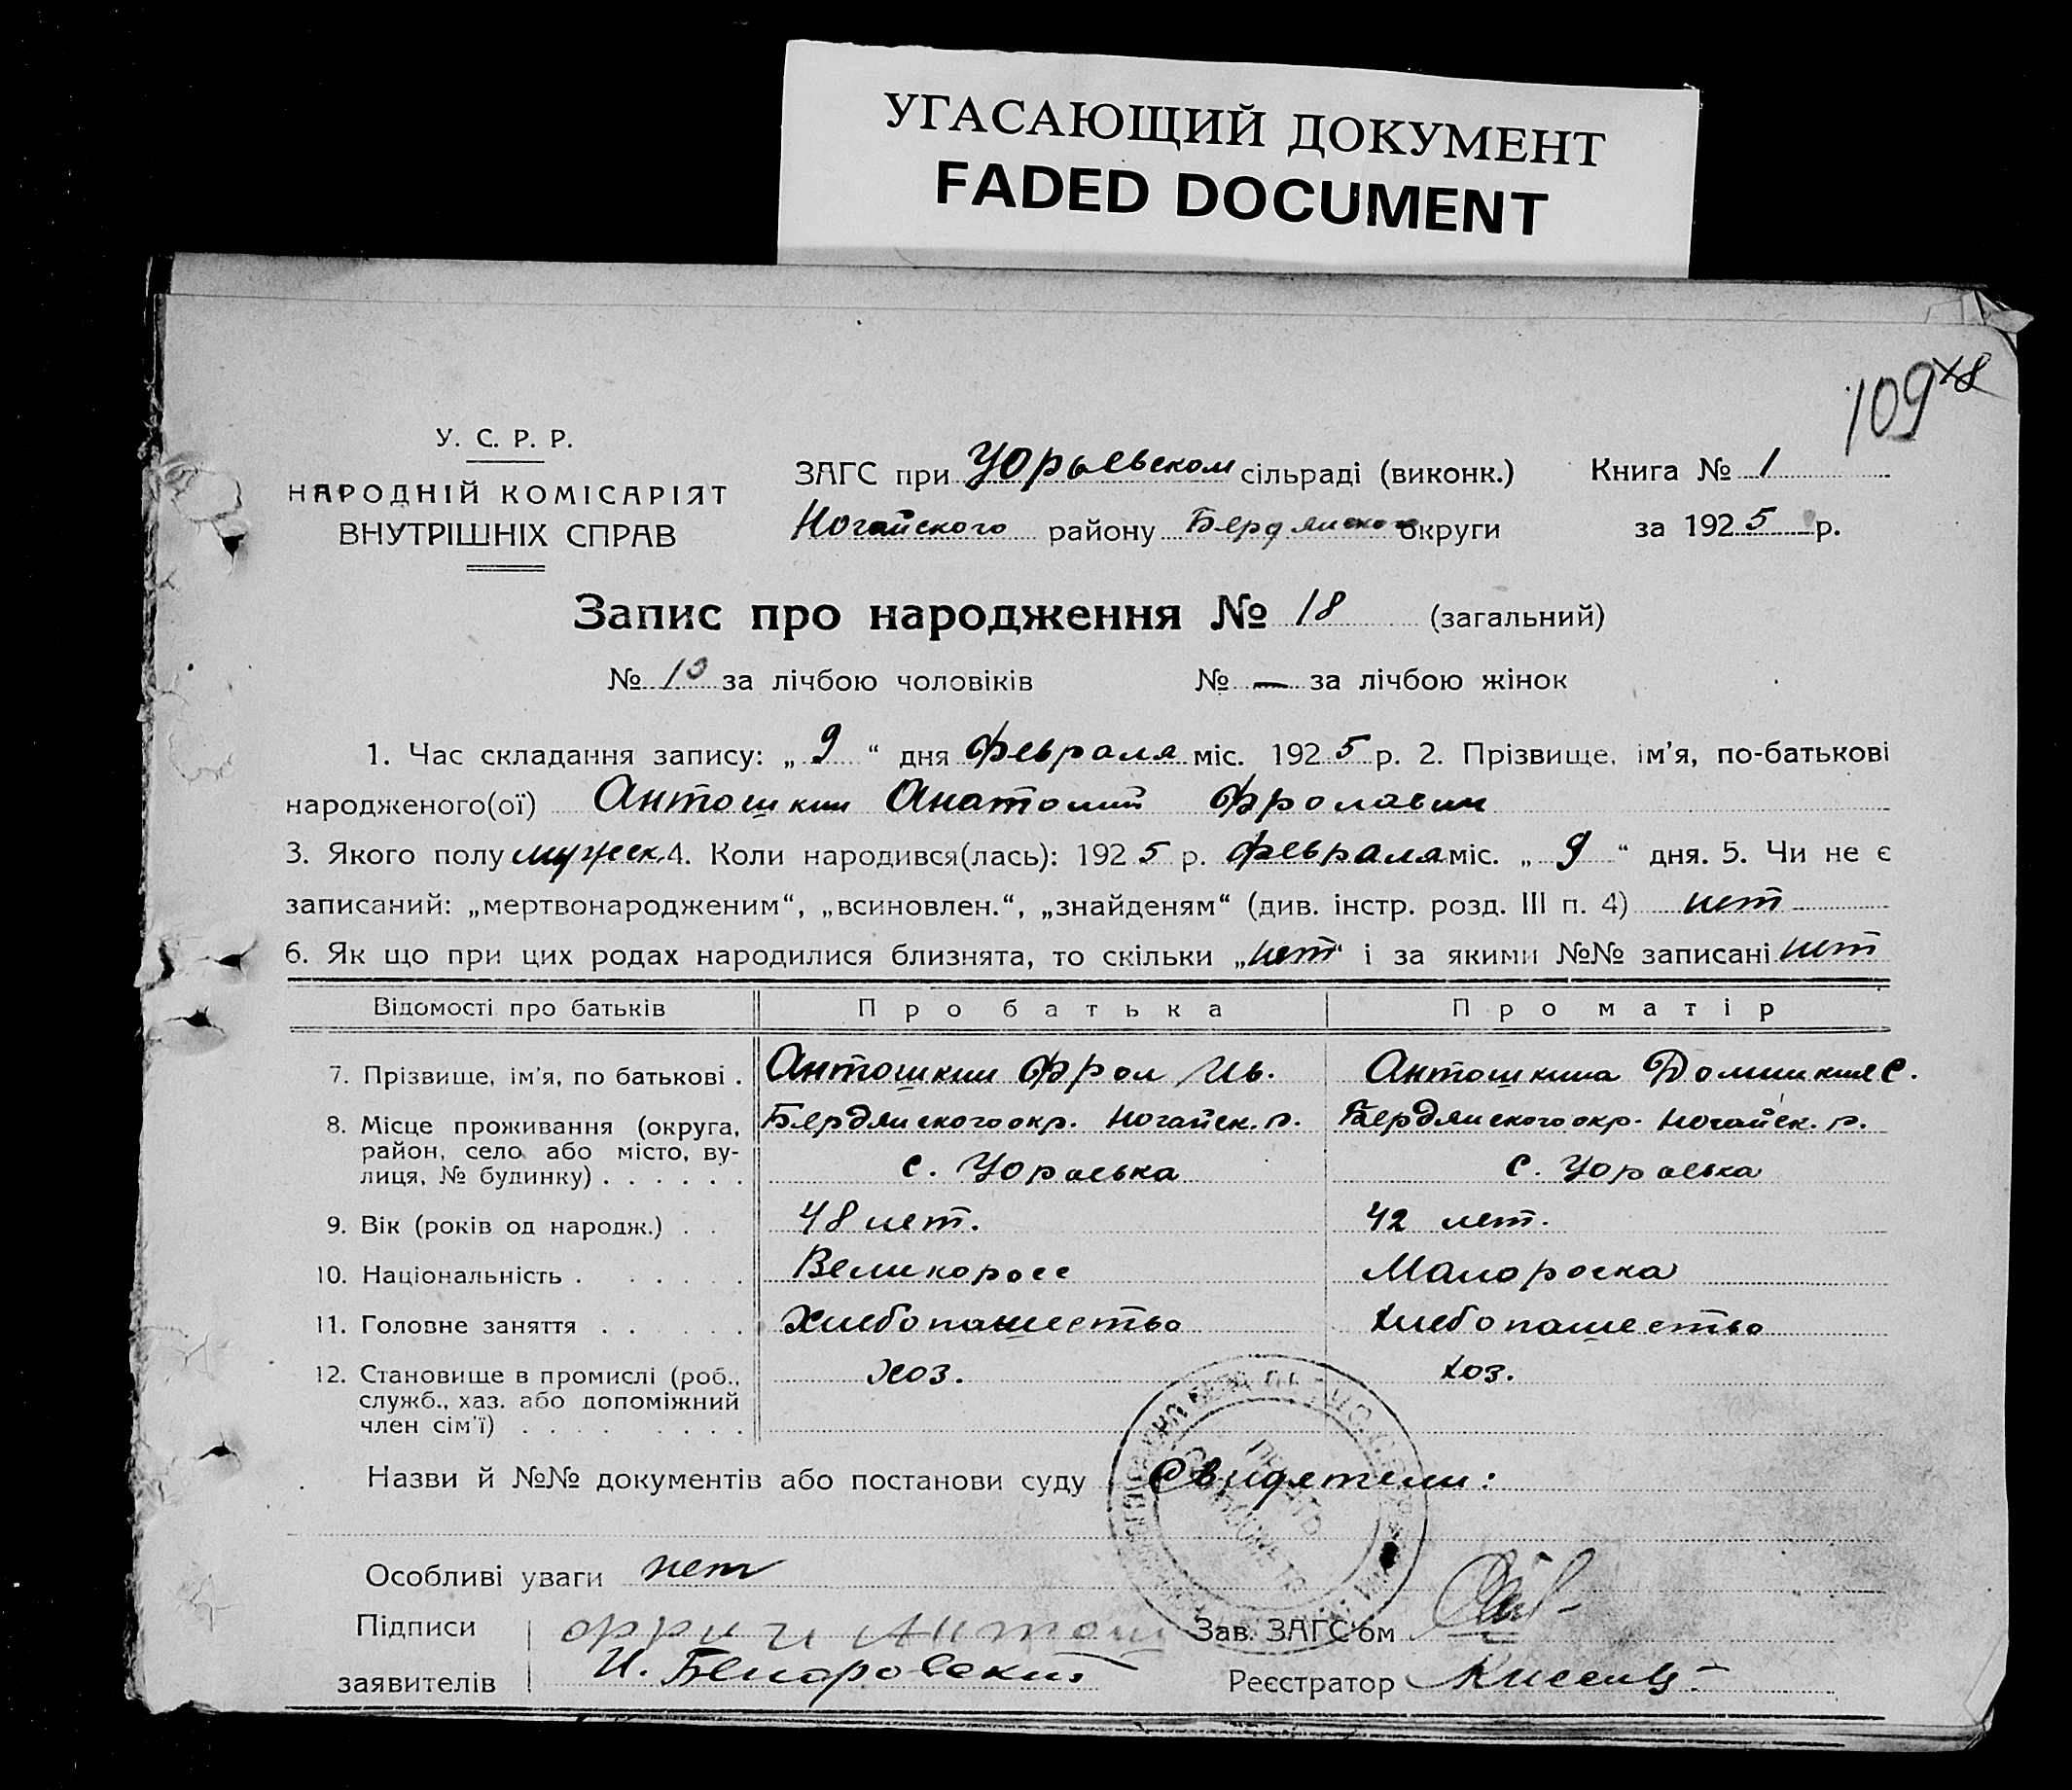 УГАСАЮЩИЙ ДОКУМЕНТ
FADED DOCUMENT
109 18
У. С. Р. Р.
НАРОДНІЙ КОМІСАРІЯТ
ВНУТРІШНІХ СПРАВ
ЗАГС при Юрьевском сільраді (виконк.) Книга № 1
Ногайского району Бердянского округи за 1925 р.
Запис про народження № 18 (загальний)
№ 10 за лічбою чоловіків № — за лічбою жінок
1. Час складання запису: „ 9 “ дня Февраля міс. 1925 р. 2. Прізвище, ім’я, по-батькові
народженого(ої) Антошкин Анатолий Фролавич
3. Якого полу мужеск. 4. Коли народився(лась): 1925 р. февраля міс. „ 9 “ дня. 5. Чи не є
записаний: „мертвонародженим“, „всиновлен.“, „знайденям“ (див. інстр. розд. III п. 4) нет
6. Як що при цих родах народилися близнята, то скільки „нет“ і за якими №№ записані нет
Відомості про батьків Про батька Про матір
7. Прізвище, ім’я, по батькові . Антошкин Фрол Ив. Антошкина Домникия С.
8. Місце проживання (округа, Бердянского окр. Ногайск. р. Бердянского окр. Ногайск. р.
район, село або місто, ву-
лиця, № будинку) . . . . . . с. Юраевка с. Юраевка
9. Вік (років од народж.) . . 48 лет. 42 лет.
10. Національність . . . . . . Великоросс Малороска
11. Головне заняття . . . . . Хлебопашество Хлебопашество
12. Становище в промислі (роб., хоз. хоз.
служб., хаз. або допоміжний
член сім’ї) . . . . . . . .
Назви й №№ документів або постанови суду Свидетели:
Особливі уваги нет
Підписи Антош Зав. ЗАГС’ом
заявителів И. Реєстратор